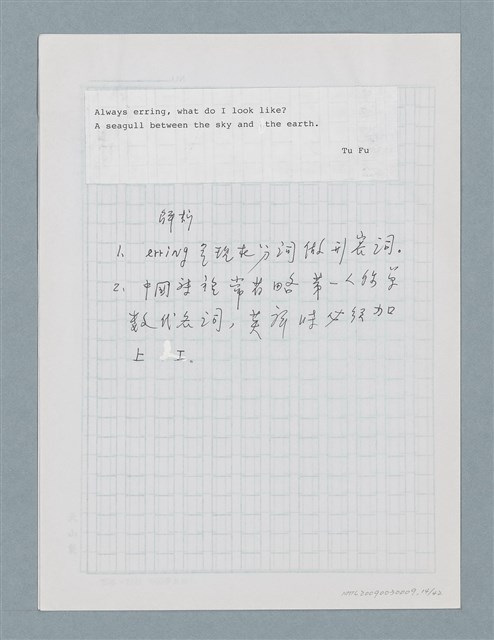 Always erring, what do I look like?
A seagull between the sky and the earth.
Tu Fu
評析
1. erring是現在分词做形容词。
2. 中國詩裡常省略第一人稱单
数代名词，英譯時必須加
上 I。